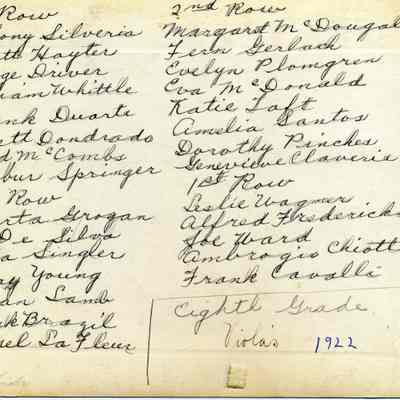 Row
ony Silveria
tt Hayter
ge Driver
iam Whittle
nk Duarte
ett Dondrado
d McCombs
bur Springer
Row
rta Grogan
De Silva
a Singler
ay Young
an Lamb
nk Brazil
el La Fleur
2nd Row
Margaret McDougal
Fern Gerlach
Evelyn Plomgren
Eva McDonald
Katie Toft
Amelia Santos
Dorothy Pinches
Genevieve Claveria
1st Row
Leslie Wagner
Alfred Fredericks
Joe Ward
Ambrogio Chiott
Frank Cavalli
Eighth Grade
Viola's 1922